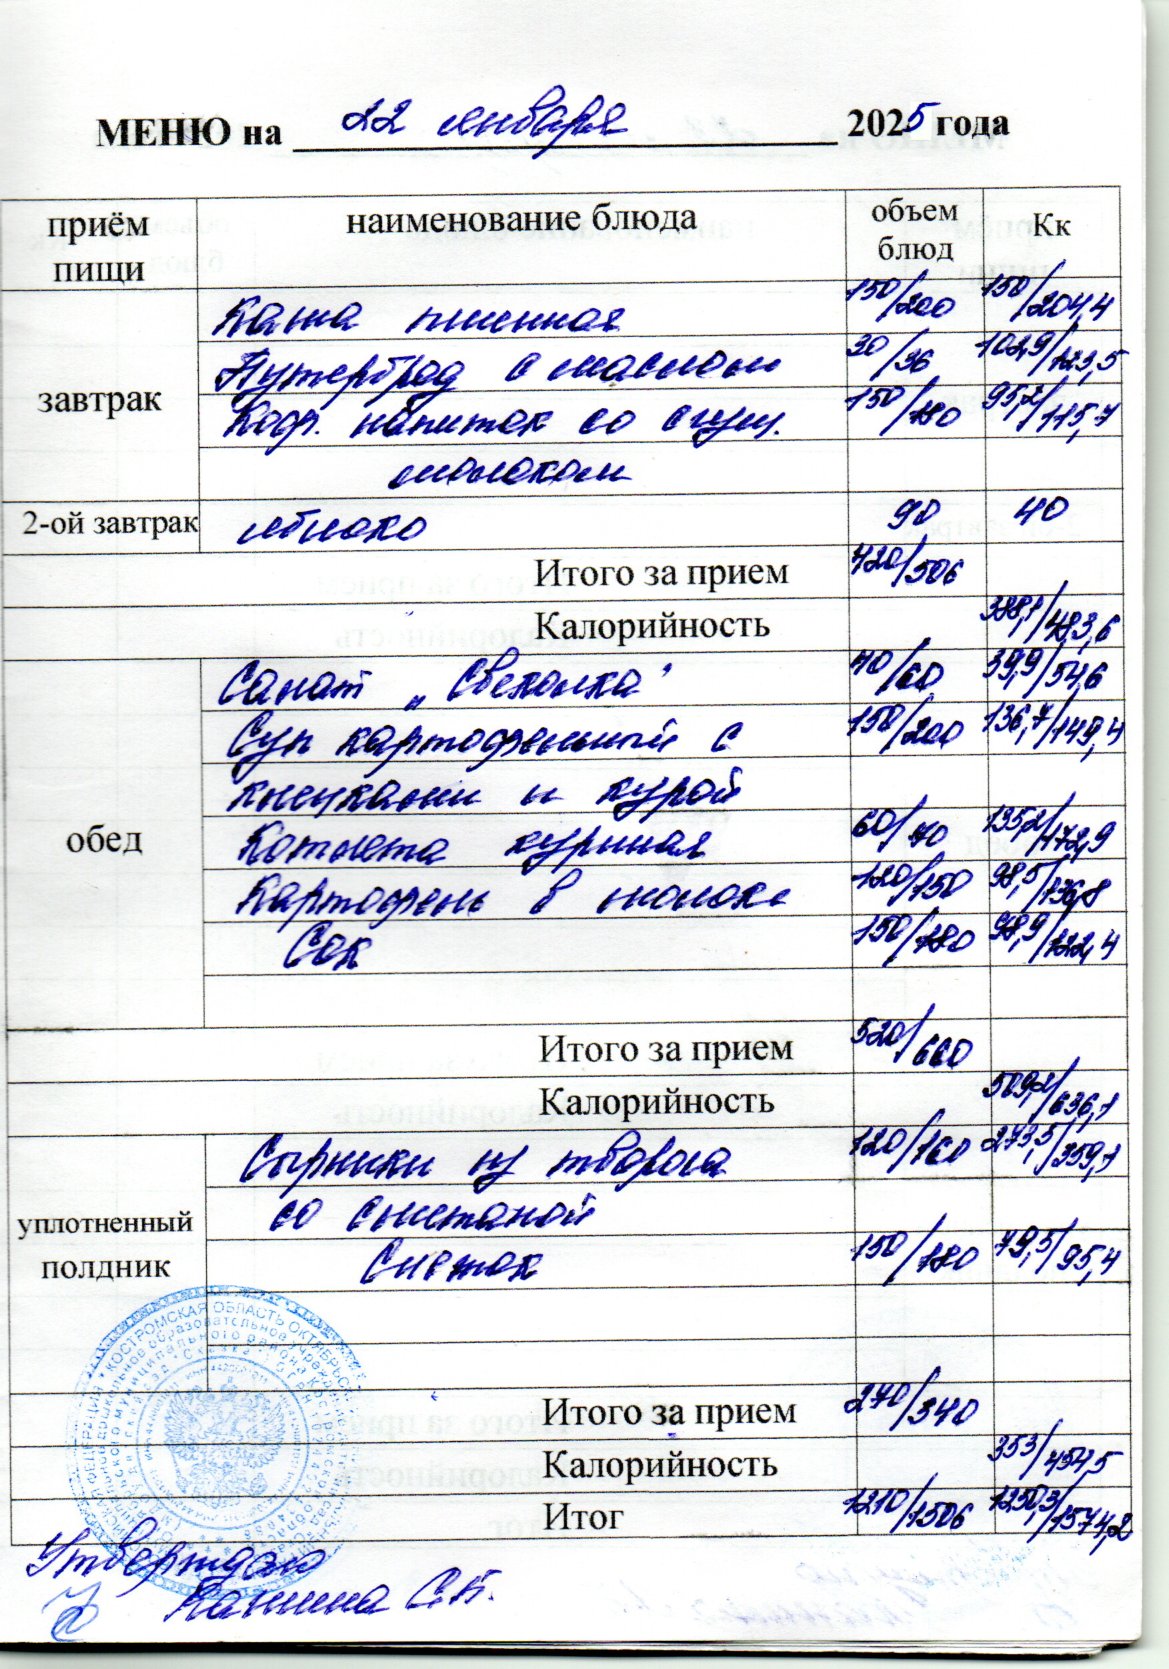 МЕНЮ на 22 января 2025 года
приём пищи наименование блюда объем блюд Кк
завтрак
Каша пшенная 150/200 150/204,4
Бутерброд с маслом 30/36 102,9/123,5
Коф. напиток со сгущ. 150/180 95,2/115,7
молоком
2-ой завтрак яблоко 90 40
Итого за прием 420/506
Калорийность 388,1/483,6
обед
Салат „Свеколка" 40/60 39,9/54,6
Суп картофельный с 150/200 136,7/149,4
клецками и курой
Котлета куриная 60/70 135,2/172,9
Картофель в молоке 120/150 98,5/136,8
Сок 150/180 98,9/122,4
Итого за прием 520/660
Калорийность 509,2/636,1
уплотненный полдник
Сырники из творога 120/160 273,5/359,1
со сметаной
Снежок 150/180 79,5/95,4
Итого за прием 270/340
Калорийность 353/454,5
Итог 1210/1506 1250,3/1574,2
Утверждаю
КОСТРОМСКАЯ ОБЛАСТЬ